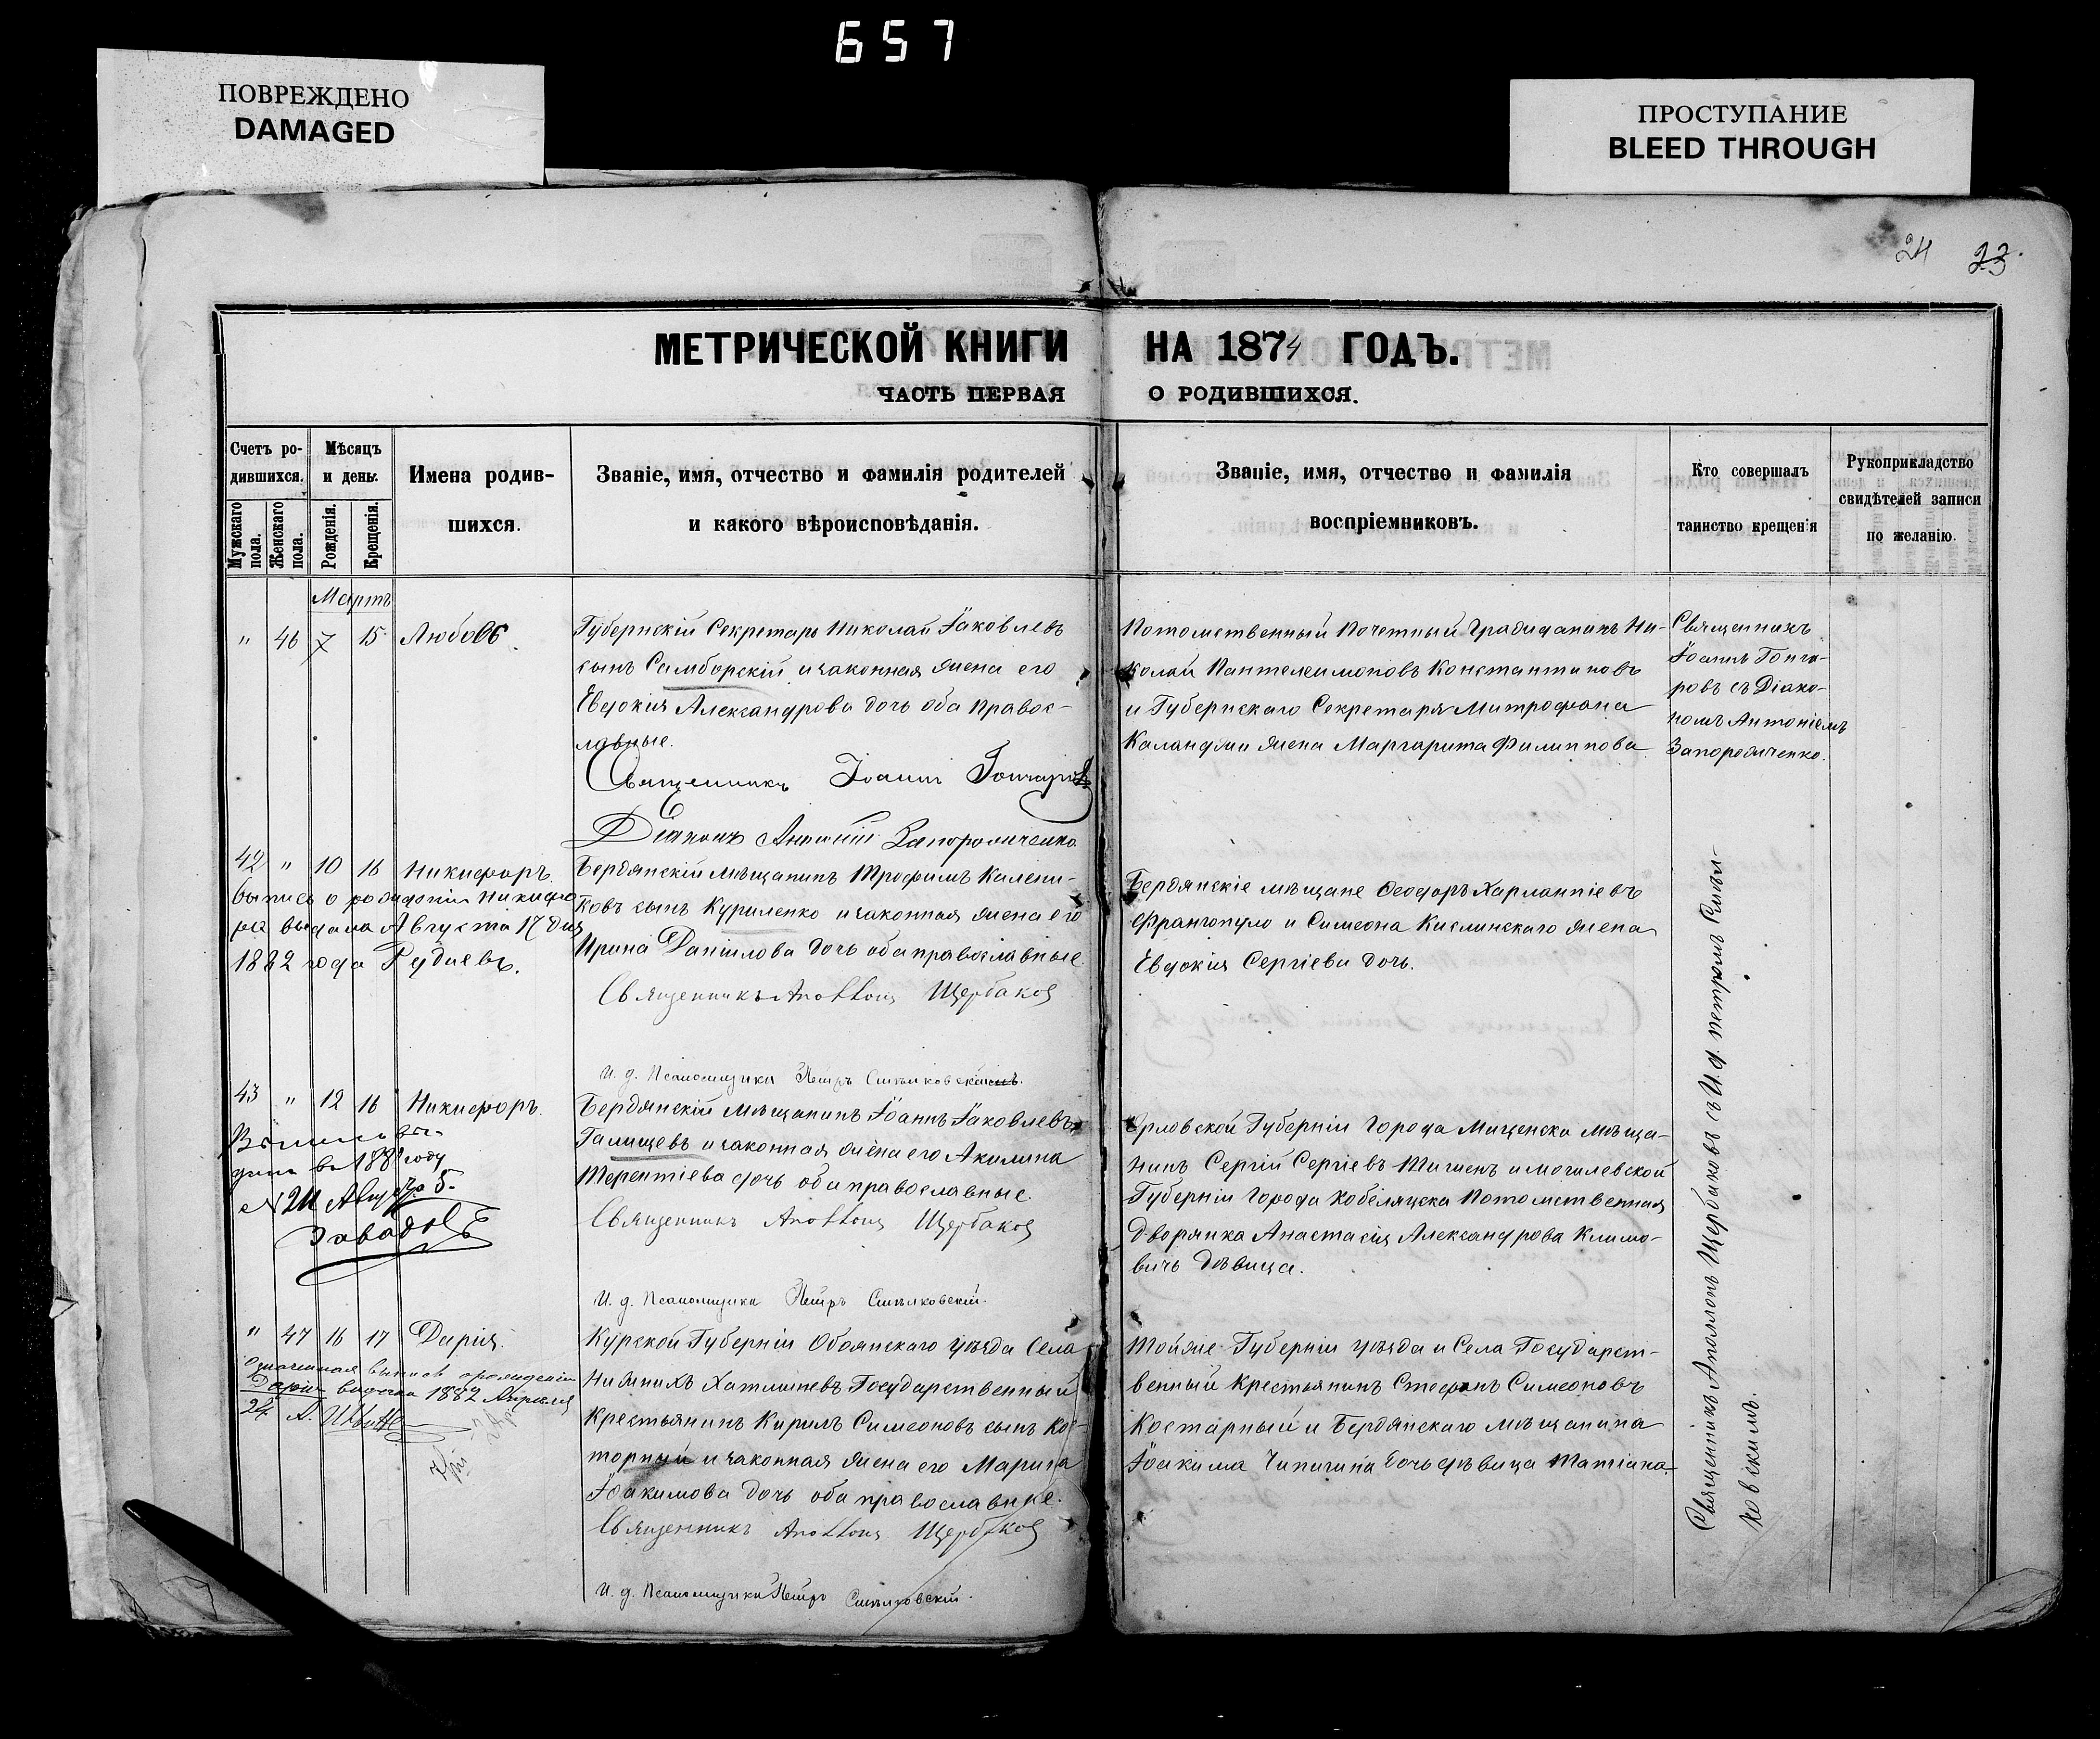 657
ПОВРЕЖДЕНО
DAMAGED
ПРОСТУПАНИЕ
BLEED THROUGH
24 23.
МЕТРИЧЕСКОЙ КНИГИ НА 1874 ГОДЪ.
ЧАСТЬ ПЕРВАЯ О РОДИВШИХСЯ.
Счетъ ро-
дившихся.
Мужскаго пола.
Женскаго пола.
Мѣсяцъ
и день.
Рожденія.
Крещенія.
Имена родив-
шихся.
Званіе, имя, отчество и фамилія родителей
и какого вѣроисповѣданія.
Званіе, имя, отчество и фамилія
воспріемниковъ.
Кто совершалъ
таинство крещенія
Рукоприкладство
свидѣтелей записи
по желанію.
Мартъ
" 46 7 15 Любовь.
Губернскій Секретарь Николай Іаковлевъ
сынъ Самборскій и законная жена его
Евдокія Александрова дочь оба правос-
лавные.
Священникъ Іоаннъ Гончаровъ
Діаконъ Антоній Запорожченко
Потомственный Почетный Гражданинъ Ни-
колай Пантелеимоновъ Константиновъ
и Губернскаго Секретаря Митрофана
Каланджи жена Маргарита Филиппова
Священникъ
Іоаннъ Гонча-
ровъ съ Діако-
номъ Антоніемъ
Запорожченко.
42 " 10 16 Никифоръ.
выпись о рожденіи Никифо
ра выдана Августа 17 дня
1882 года Рудневъ.
Бердянскій мѣщанинъ Трофимъ Калени-
ковъ сынъ Куриленко и законная жена его
Ирина Даніилова дочь оба православные.
Священникъ Аполлонъ Щербаковъ
И. д. Псаломщика Петръ Смѣлковскій
Бердянскіе мѣщане Феодоръ Харлампіевъ
Франгопуло и Симеона Кислинскаго жена
Евдокія Сергіева дочь.
43 " 12 16 Никифоръ.
Выпись вы-
дана въ 1881 году
№ 24 Августа 5.
Бердянскій мѣщанинъ Іоаннъ Іаковлевъ
Галищевъ и законная жена его Акилина
Терентіева дочь оба православные.
Священникъ Аполлонъ Щербаковъ
И. д. Псаломщика Петръ Смѣлковскій.
Орловской Губерніи Города Мценска мѣща-
нинъ Сергій Сергіевъ Тишенъ и могилевской
Губерніи Города Кобеляцска Потомственная
Дворянка Анастасія Александрова Климо-
вичъ дѣвица.
" 47 16 17 Дарія.
Означенная выпись о рожденіи
Даріи выдана 1882 Апрѣля
24
Курской Губерніи Обоянскаго уѣзда Села
Нижнихъ Хатмыжевъ Государственный
Крестьянинъ Кирилъ Симеоновъ сынъ Кос-
торный и законная жена его Марина
Іоакимова дочь оба православные.
Священникъ Аполлонъ Щербаковъ
И. д. Псаломщика Петръ Смѣлковскій.
Тойже Губерніи уѣзда и Села Государст-
венный Крестьянинъ Стефанъ Симеоновъ
Костарный и Бердянскаго мѣщанина
Іоакима Чипигина дочь дѣвица Татіана.
Священникъ Аполлонъ Щербаковъ съ И. д. петромъ Смѣл-
ковскимъ.